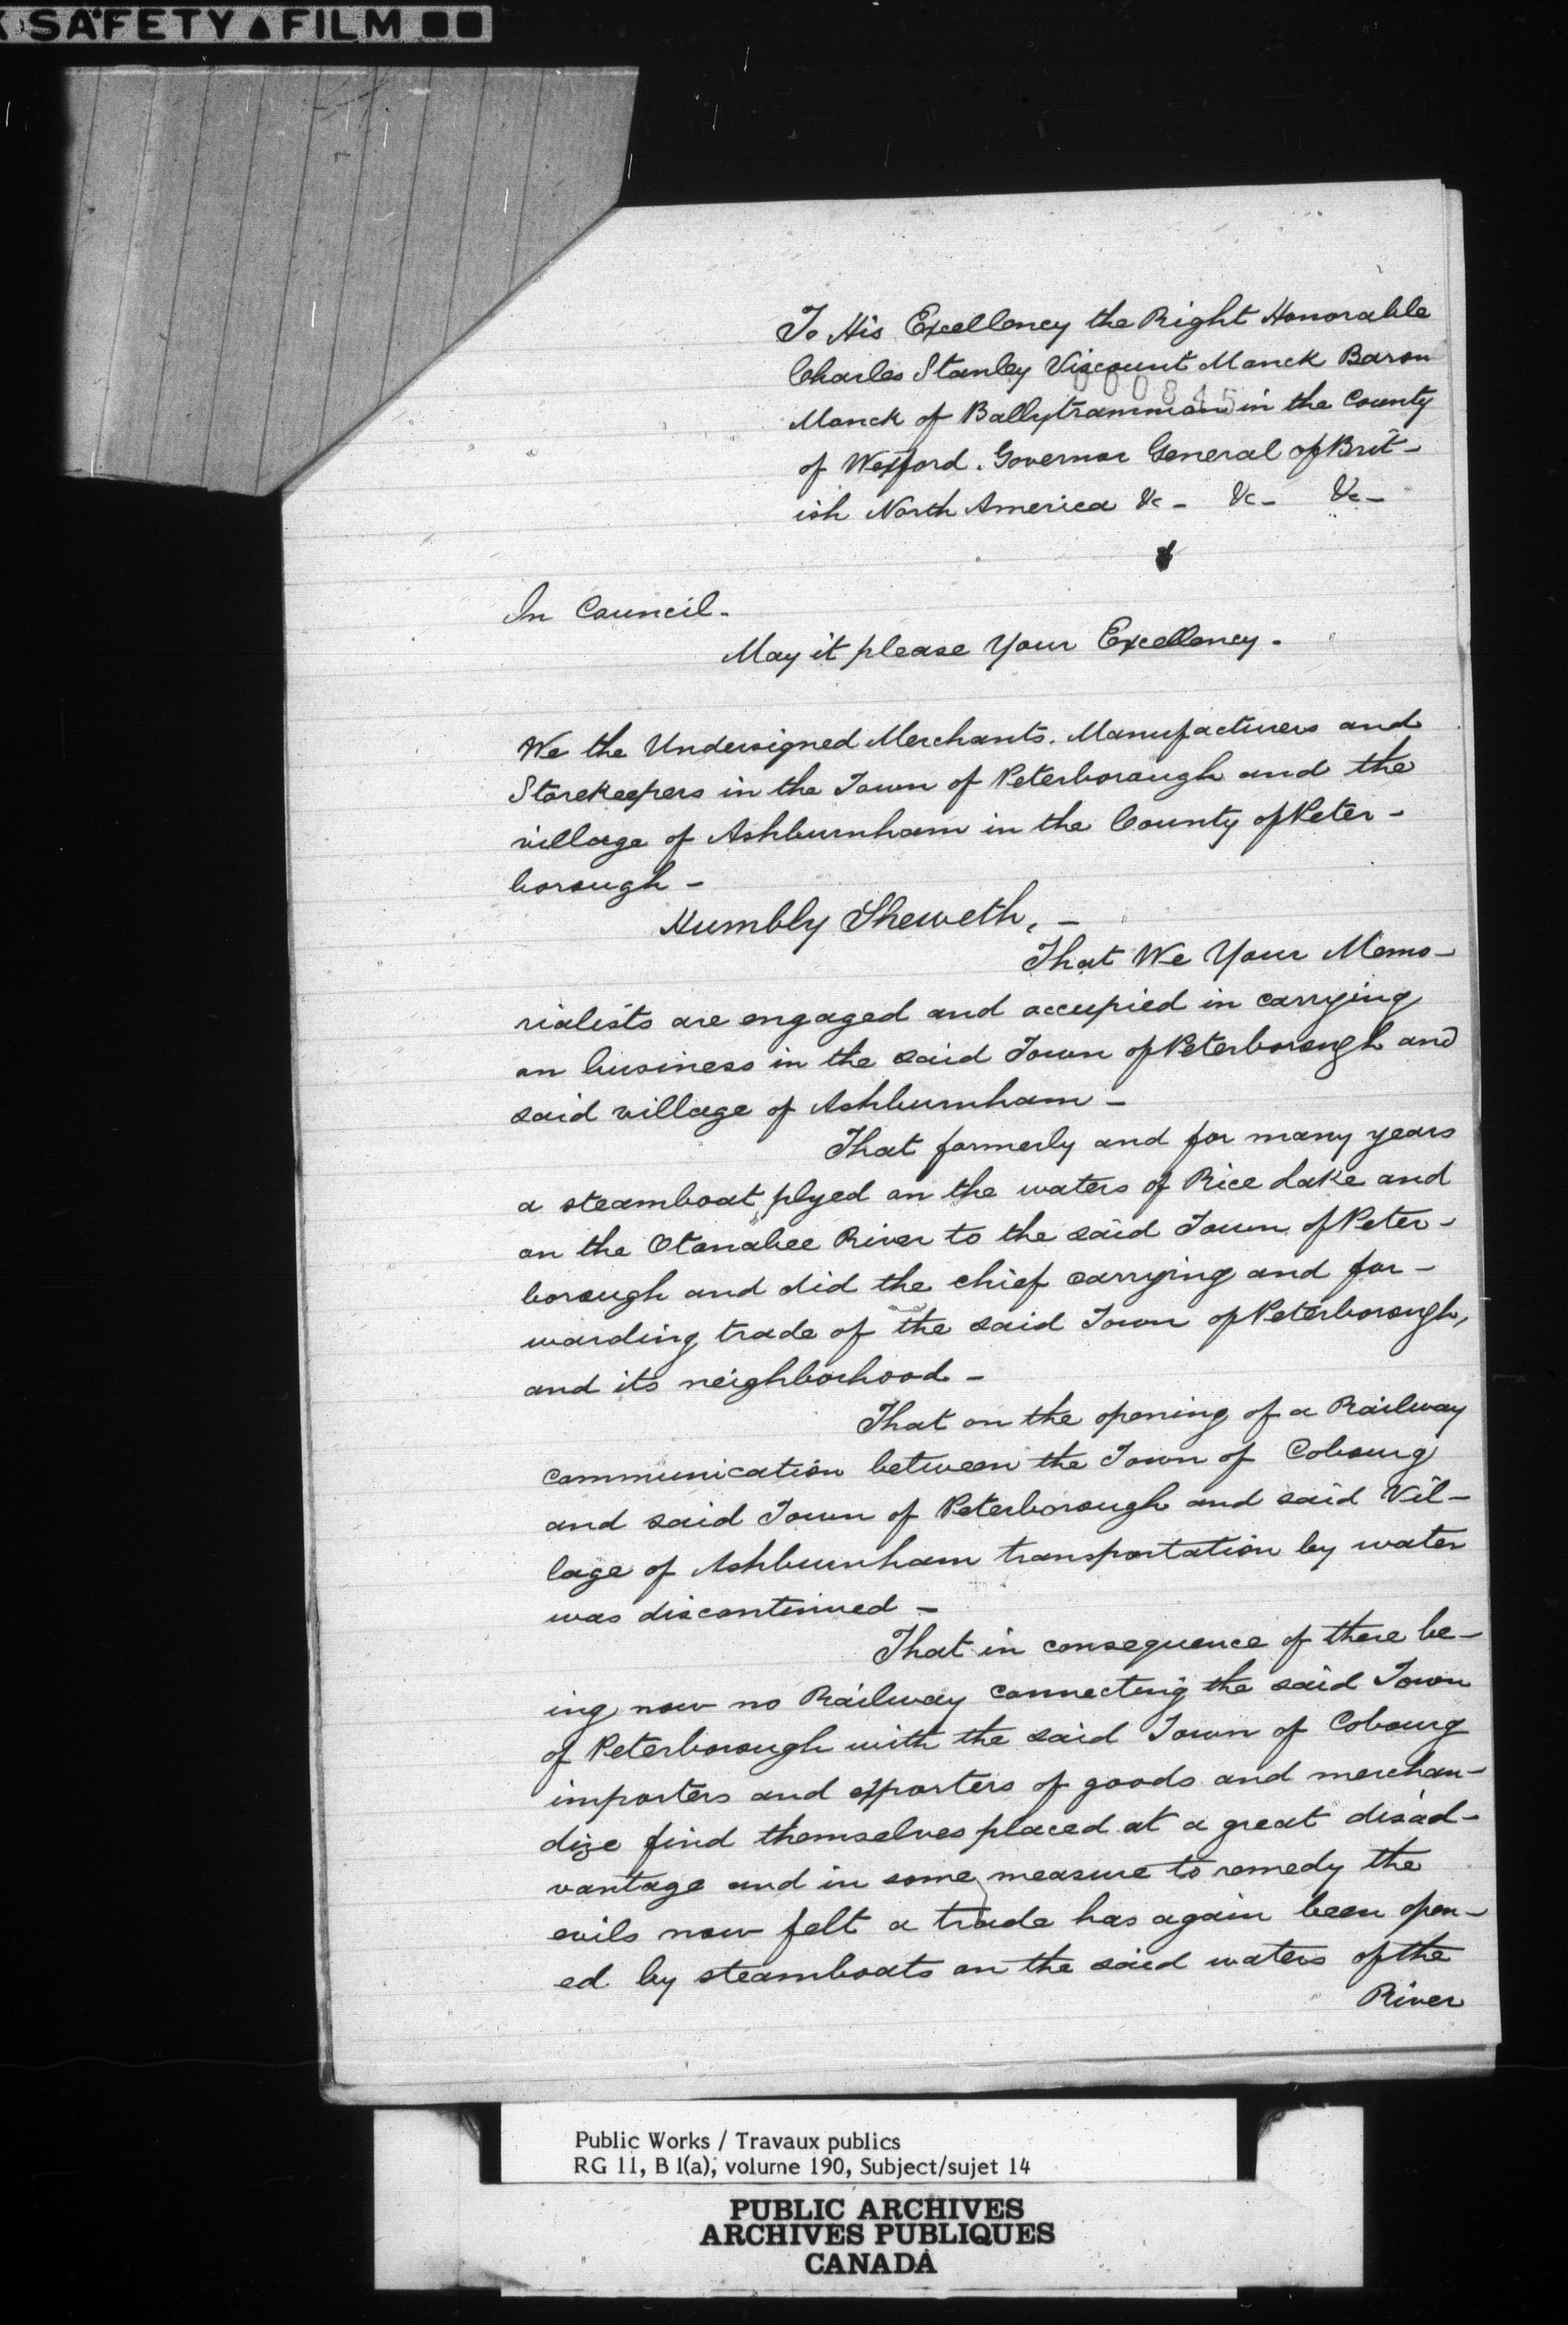 SAFETY▲FILM ■■
To His Excellency the Right Honorable
Charles Stanley Viscount Monck Baron
000845
Monck of Ballytrammon in the County
of Wexford. Governor General of Brit-
ish North America &c - &c - &c -
In Council -
May it please Your Excellency.
We the Undersigned Merchants. Manufacturers and
Storekeepers in the Town of Peterborough and the
village of Ashburnham in the County of Peter-
borough -
Humbly Sheweth, -
That We Your Memo-
rialists are engaged and occupied in carrying
on business in the said Town of Peterborough and
said village of Ashburnham -
That formerly and for many years
a steamboat plyed on the waters of Rice Lake and
on the Otonabee River to the said Town of Peter-
borough and did the chief carrying and for-
warding trade of the said Town of Peterborough,
and its neighborhood -
That on the opening of a Railway
communication between the Town of Cobourg
and said Town of Peterborough and said Vil-
lage of Ashburnham transportation by water
was discontinued -
That in consequence of there be-
ing now no Railway connecting the said Town
of Peterborough with the said Town of Cobourg
importers and exporters of goods and merchan-
dize find themselves placed at a great disad-
vantage and in some measure to remedy the
evils now felt a trade has again been open-
ed by steamboats on the said waters of the
River
Public Works / Travaux publics
RG 11, B 1(a), volume 190, Subject/sujet 14
PUBLIC ARCHIVES
ARCHIVES PUBLIQUES
CANADA